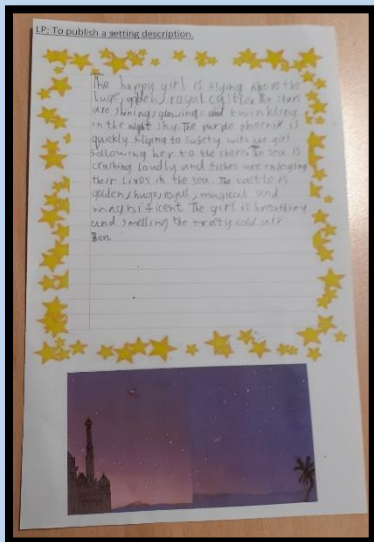 LP: To publish a setting description.
The happy girl is flying above the
huge, golden, royal castle. The stars
are shining, glowing and twinkling
in the night sky. The purple phoenix is
quickly flying to safety with the girl
following her to the shore. The sea is
crashing loudly and fishes are enjoying
their lives in the sea. The castle is
golden, huge, royal, magical and
magnificent. The girl is breathing
and smelling the frosty cold air
Ben